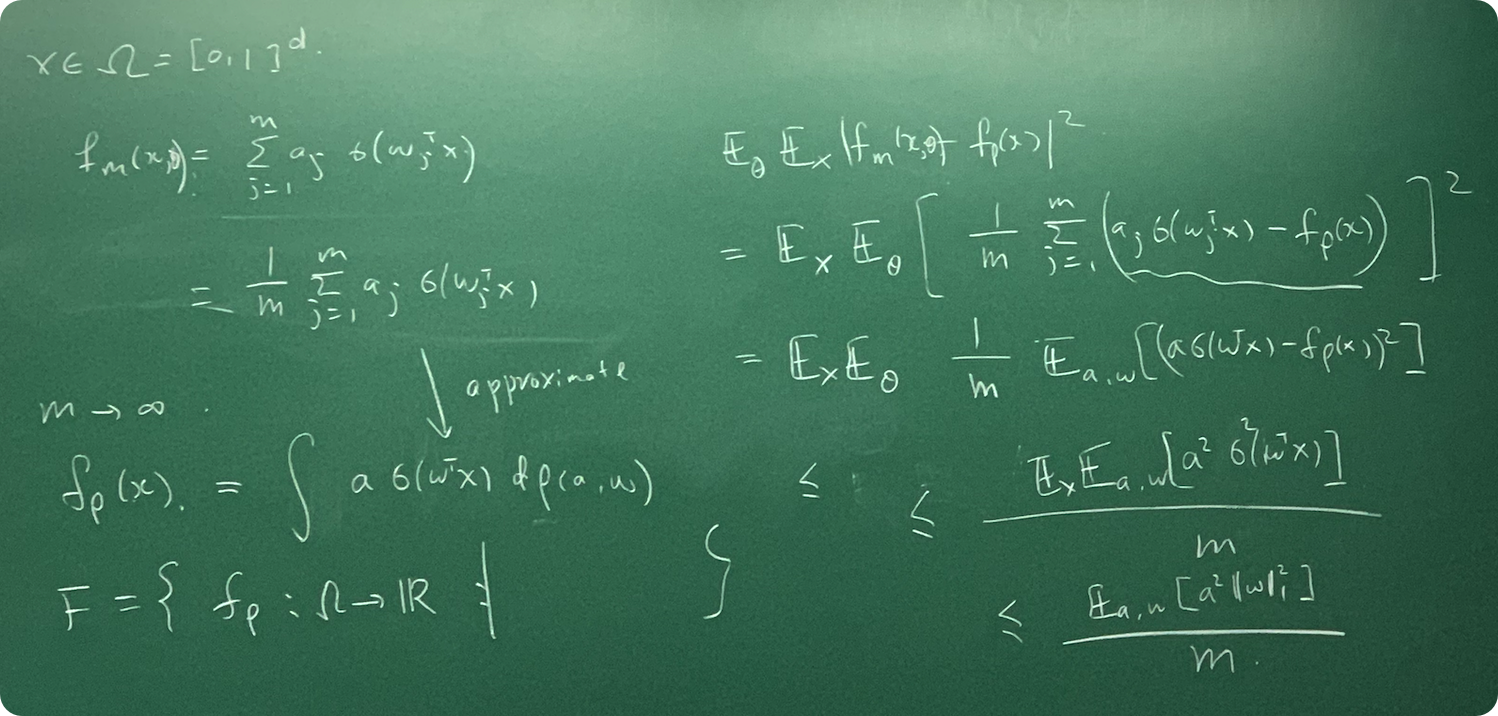 x ∈ Ω = [0,1]^d.
f_m(x,θ) = ∑_{j=1}^{m} a_j σ(w_j^T x)
= 1/m ∑_{j=1}^{m} a_j σ(w_j^T x)
approximate
m → ∞.
f_ρ(x) = ∫ a σ(w^T x) dρ(a,w)
F = { f_ρ : Ω → ℝ | }
E_θ E_x |f_m(x,θ) - f_ρ(x)|^2
= E_x E_θ [ 1/m ∑_{j=1}^{m} (a_j σ(w_j^T x) - f_ρ(x)) ]^2
= E_x E_θ 1/m E_{a,w}[(a σ(w^T x) - f_ρ(x))^2]
≤ ≤ E_x E_{a,w}[a^2 σ^2(w^T x)] / m
≤ E_{a,w}[a^2 ||w||_1^2] / m.